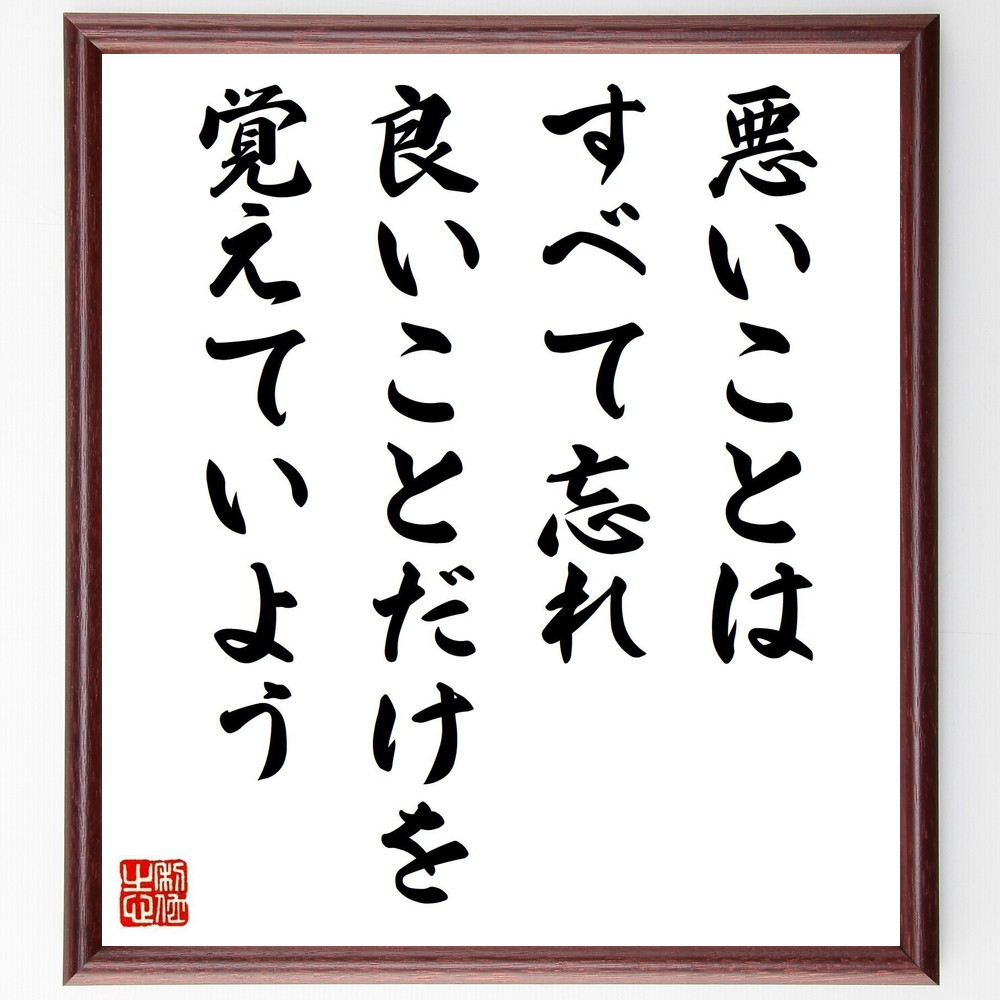 悪いことは
すべて忘れ
良いことだけを
覚えていよう